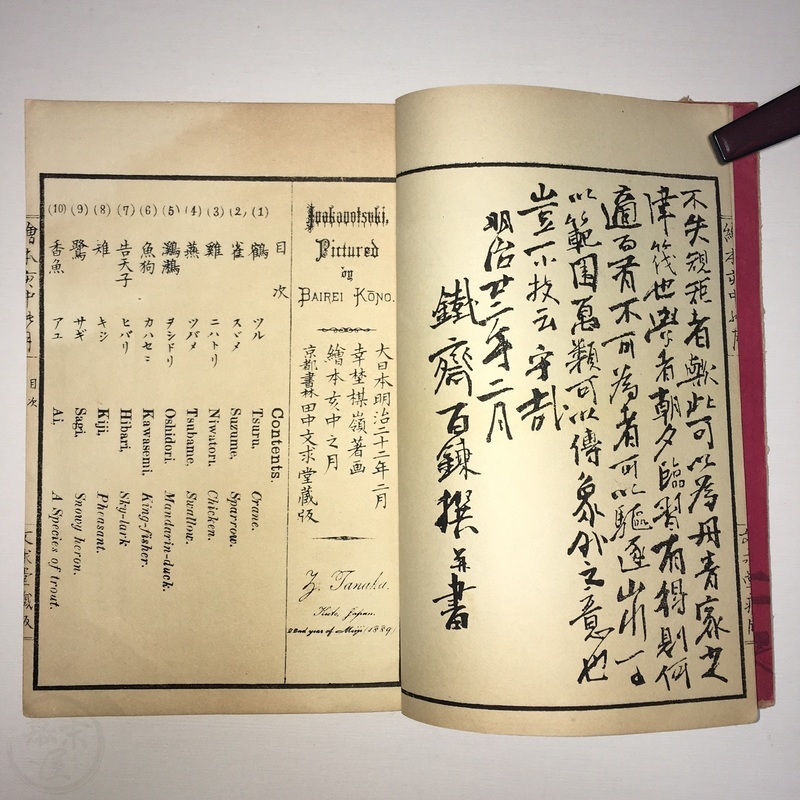 不失規矩者歟此可以為丹青家之
津筏也學者朝夕臨習有得則何
適而有不可為者可以驅逐山川可
以範圍萬類可以傳象外之意也
豈小技云乎哉
明治廿二年二月
鐵齋百鍊撰并書
Inokanotsuki,
Pictured
by
BAIREI KŌNO.
大日本明治二十二年二月
幸埜楳嶺著画
繪本亥中之月
京都書林田中文求堂蔵版
Z. Tanaka.
Kioto, Japan.
22nd year of Meiji (1889)
目次 Contents.
(1) 鶴 ツル Tsuru, Crane.
(2) 雀 スヾメ Suzume, Sparrow.
(3) 雞 ニハトリ Niwatori, Chicken.
(4) 燕 ツバメ Tsubame, Swallow.
(5) 鸂鶒 ヲシドリ Oshidori, Mandarin-duck.
(6) 魚狗 カハセミ Kawasemi, King-fisher.
(7) 告天子 ヒバリ Hibari, Sky-lark
(8) 雉 キジ Kiji, Pheasant.
(9) 鷺 サギ Sagi, Snowy heron.
(10) 香魚 アユ Ai, A Species of trout.
繪本亥中之月 目次 文求堂蔵版